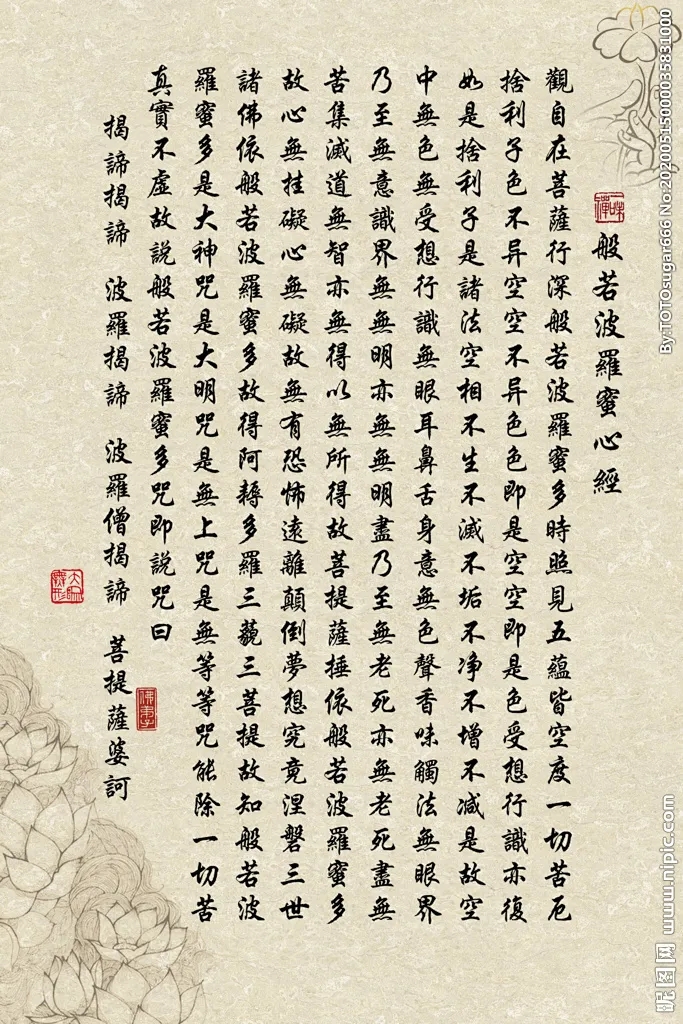 般若波羅蜜心經
一味禪
觀自在菩薩行深般若波羅蜜多時照見五蘊皆空度一切苦厄
捨利子色不异空空不异色色即是空空即是色受想行識亦復
如是捨利子是諸法空相不生不滅不垢不净不增不减是故空
中無色無受想行識無眼耳鼻舌身意無色聲香味觸法無眼界
乃至無意識界無無明亦無無明盡乃至無老死亦無老死盡無
苦集滅道無智亦無得以無所得故菩提薩捶依般若波羅蜜多
故心無挂礙心無礙故無有恐怖遠離顛倒夢想究竟涅磐三世
諸佛依般若波羅蜜多故得阿耨多羅三藐三菩提故知般若波
羅蜜多是大神咒是大明咒是無上咒是無等等咒能除一切苦
真實不虛故說般若波羅蜜多咒即說咒曰
揭諦揭諦 波羅揭諦 波羅僧揭諦 菩提薩婆訶
佛弟子
By:TOTOsugar666 No:20200515000035831000
昵图网 www.nipic.com